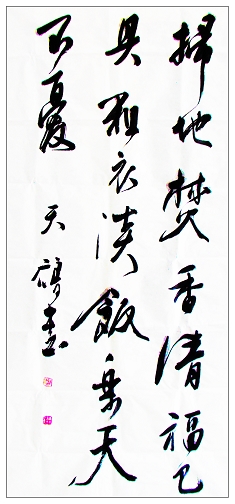 掃地焚香清福已
具粗衣淡飯樂天
不憂 天鶴書